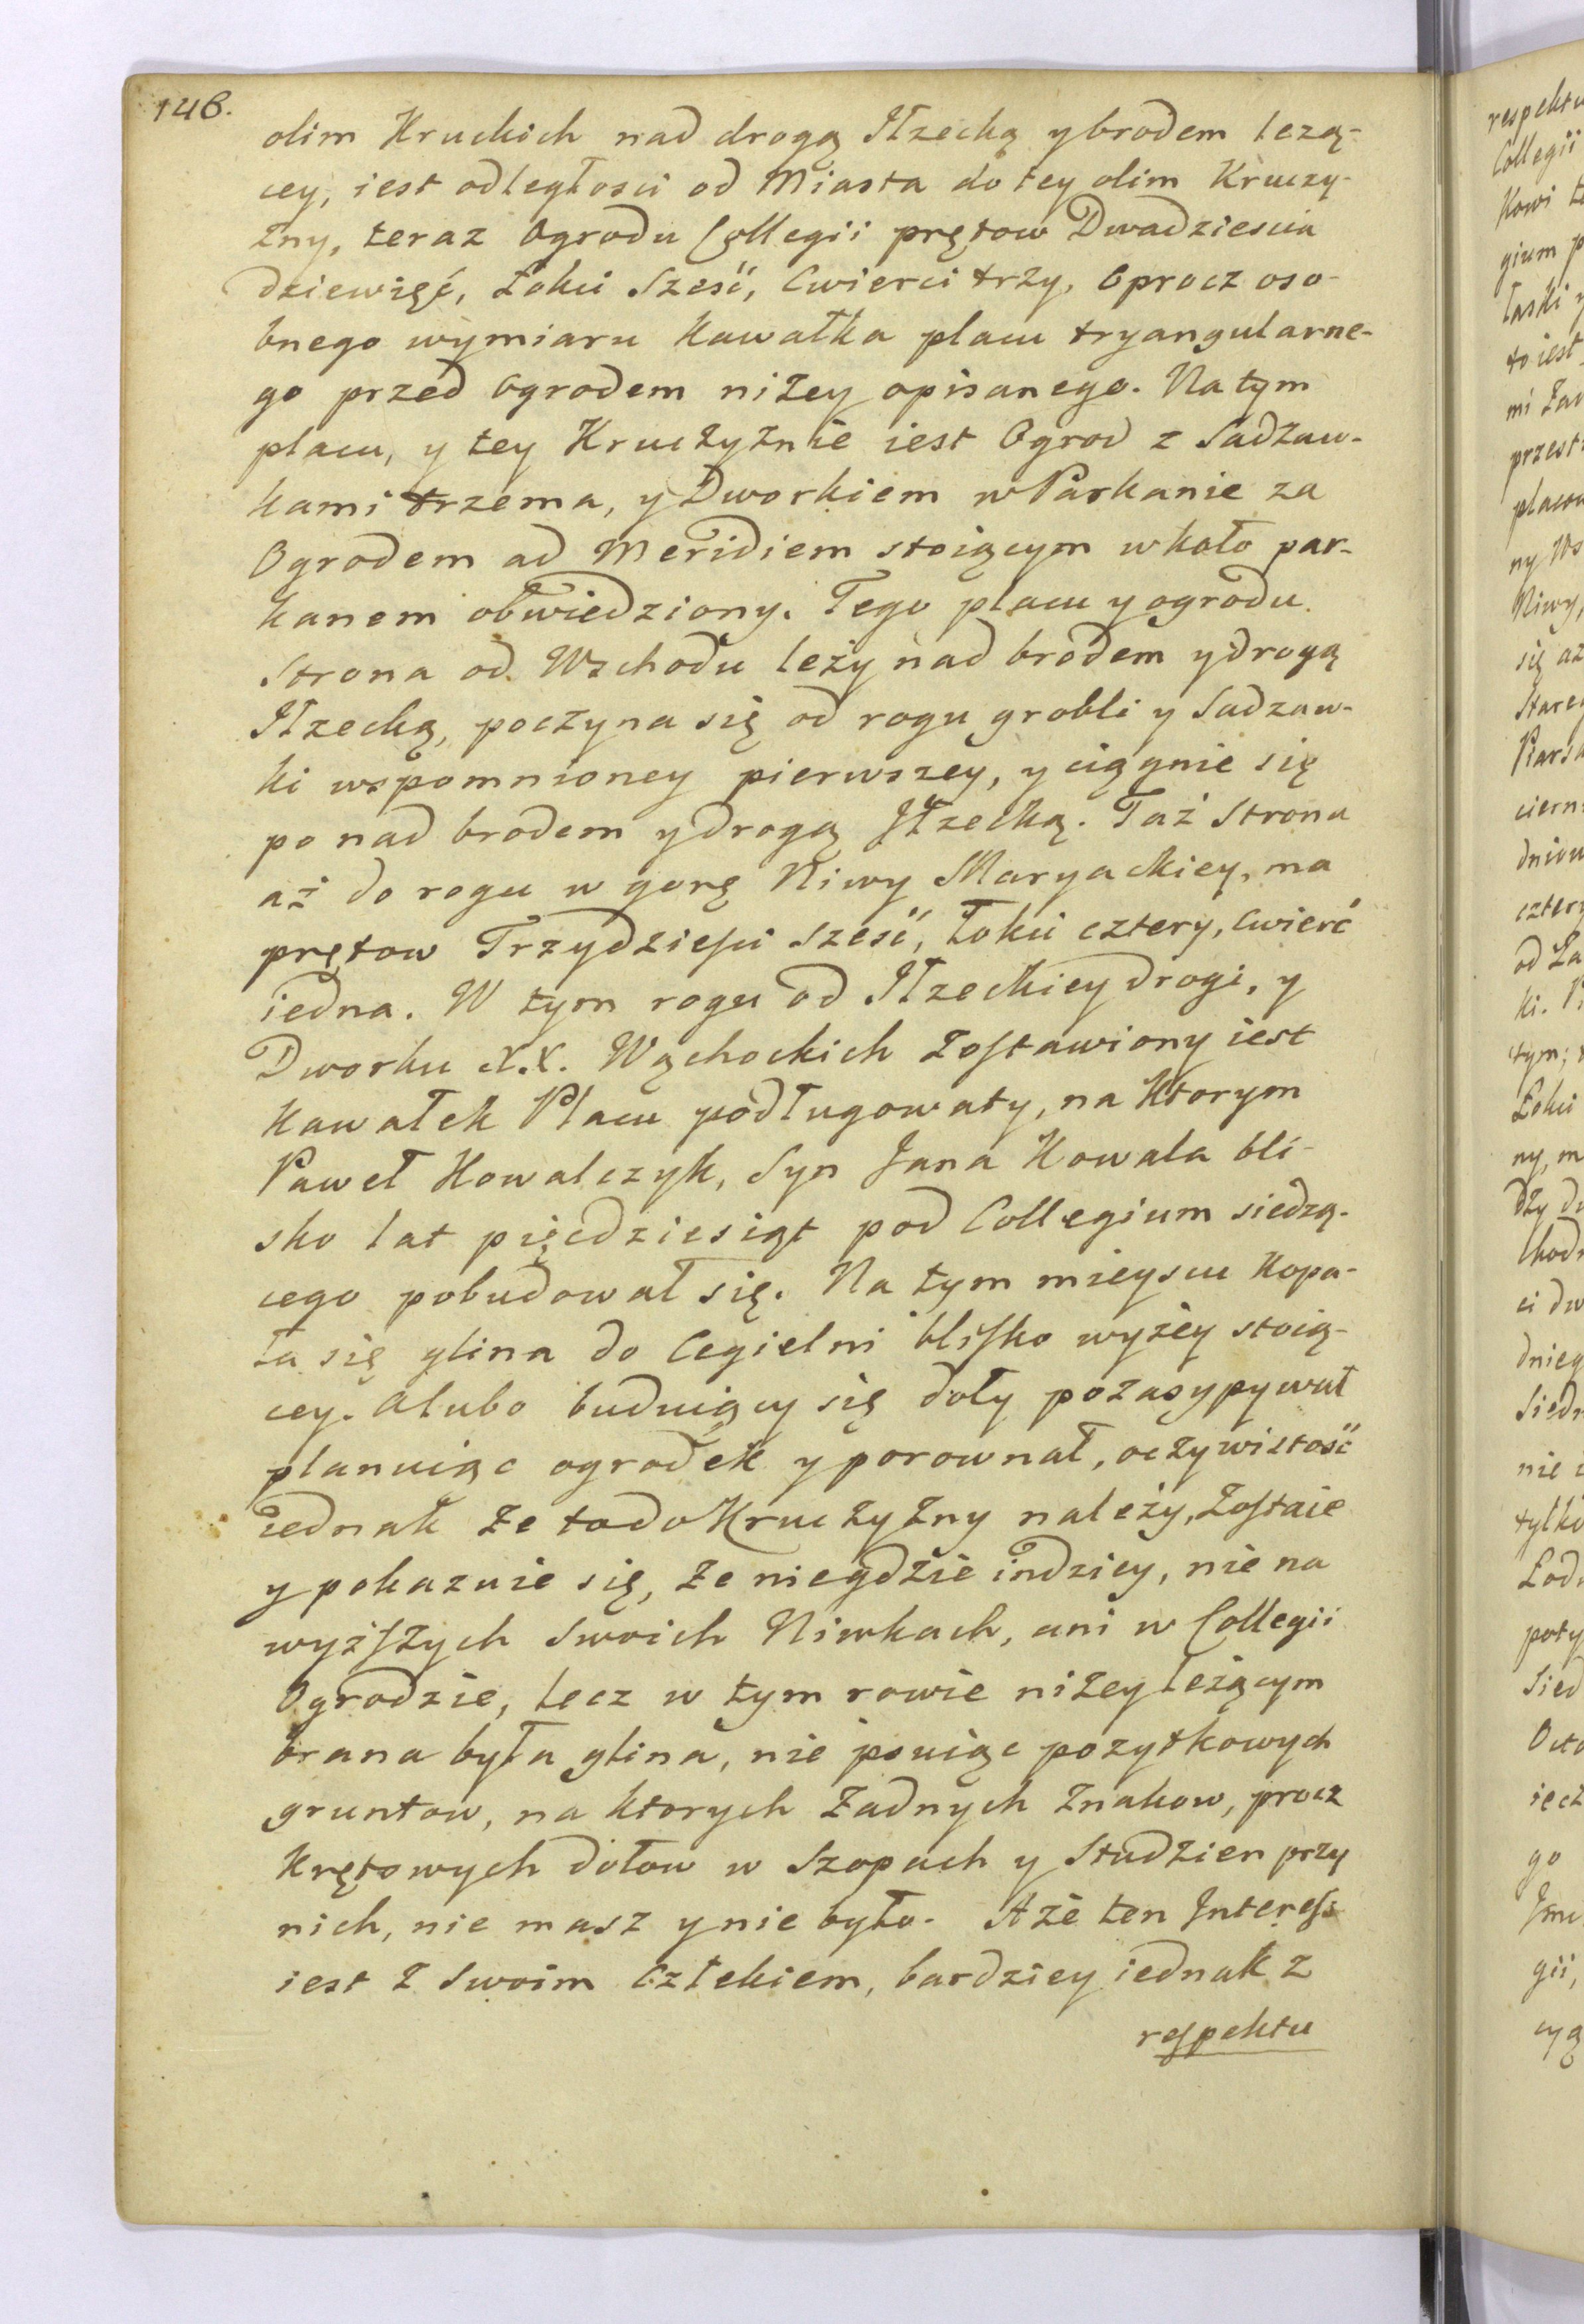 146.
olim Kruckich nad drogą Iłzecką y brodem lezą-
cey, iest odległosci od Miasta do tey olim Kruczy-
zny, teraz Ogrodu Collegii prętow Dwadziescia
dziewięć, Łokci Szesć, Cwierci trzy, Oprocz oso-
bnego wymiaru kawałka placu tryangularne-
go przed Ogrodem niżey opisanego. Na tym
placu, y tey Kruczyznie iest Ogrod z Sadzaw-
kami trzema, y Dworkiem w Parkanie za
Ogrodem ad Meridiem stoiącym w koło par-
kanem obwiedziony. Tego placu y ogrodu
Strona od Wschodu leży nad brodem y drogą
Iłzecką, poczyna się od rogu grobli y Sadzaw-
ki wspomnioney pierwszey, y ciągnie się
po nad brodem y drogą Iłzecką. Taż Strona
aż do rogu w gorę Niwy Maryackiey, ma
prętow Trzydzieści Szesć, Łokci cztery, Cwierć
iedna. W tym rogu od Iłzeckiey drogi, y
Dworku X.X. Wąchockich Zostawiony iest
kawałek Placu podługowaty, na ktorym
Paweł Kowalczyk, Syn Jana Kowala bli-
sko lat pięcdziesiąt pod Collegium siedzą-
cego pobudował się. Na tym mieyscu kopa-
ła się glina do Cegielni blisko wyżey stoią-
cey. Alubo buduiący się doły pozasypywał
planuiąc ogrodek y porownał, oczywistosć
iednak że to do Kruczyzny należy, Zostaie
y pokazuie się, że niegdzie indziey, nie na
wyższych Swoich Niwkach, ani w Collegii
Ogrodzie, lecz w tym rowie niżey leżącym
brana była glina, nie psuiąc pozytkowych
gruntow, na ktorych Żadnych Znakow, procz
Krętowych dołow w Szopach y Studzien przy
nich, nie masz y nie było. A że ten Interess
iest z Swoim Człekiem, bardziey iednak z
respektu